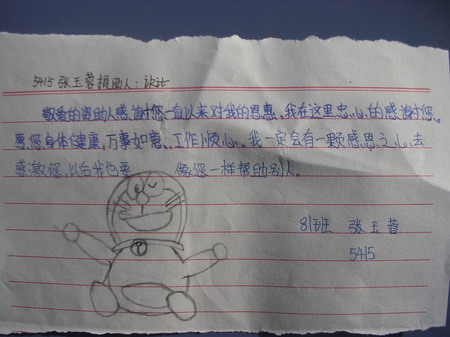 5415 张玉蓉捐助人:
敬爱的资助人感谢您一直以来对我的恩惠,我在这里忠心的感谢您。
愿您身体健康,万事如意、工作顺心。我一定会有一颗感恩之心去
感激您,以后我也要 像您一样帮助别人。
81班 张玉蓉
5415